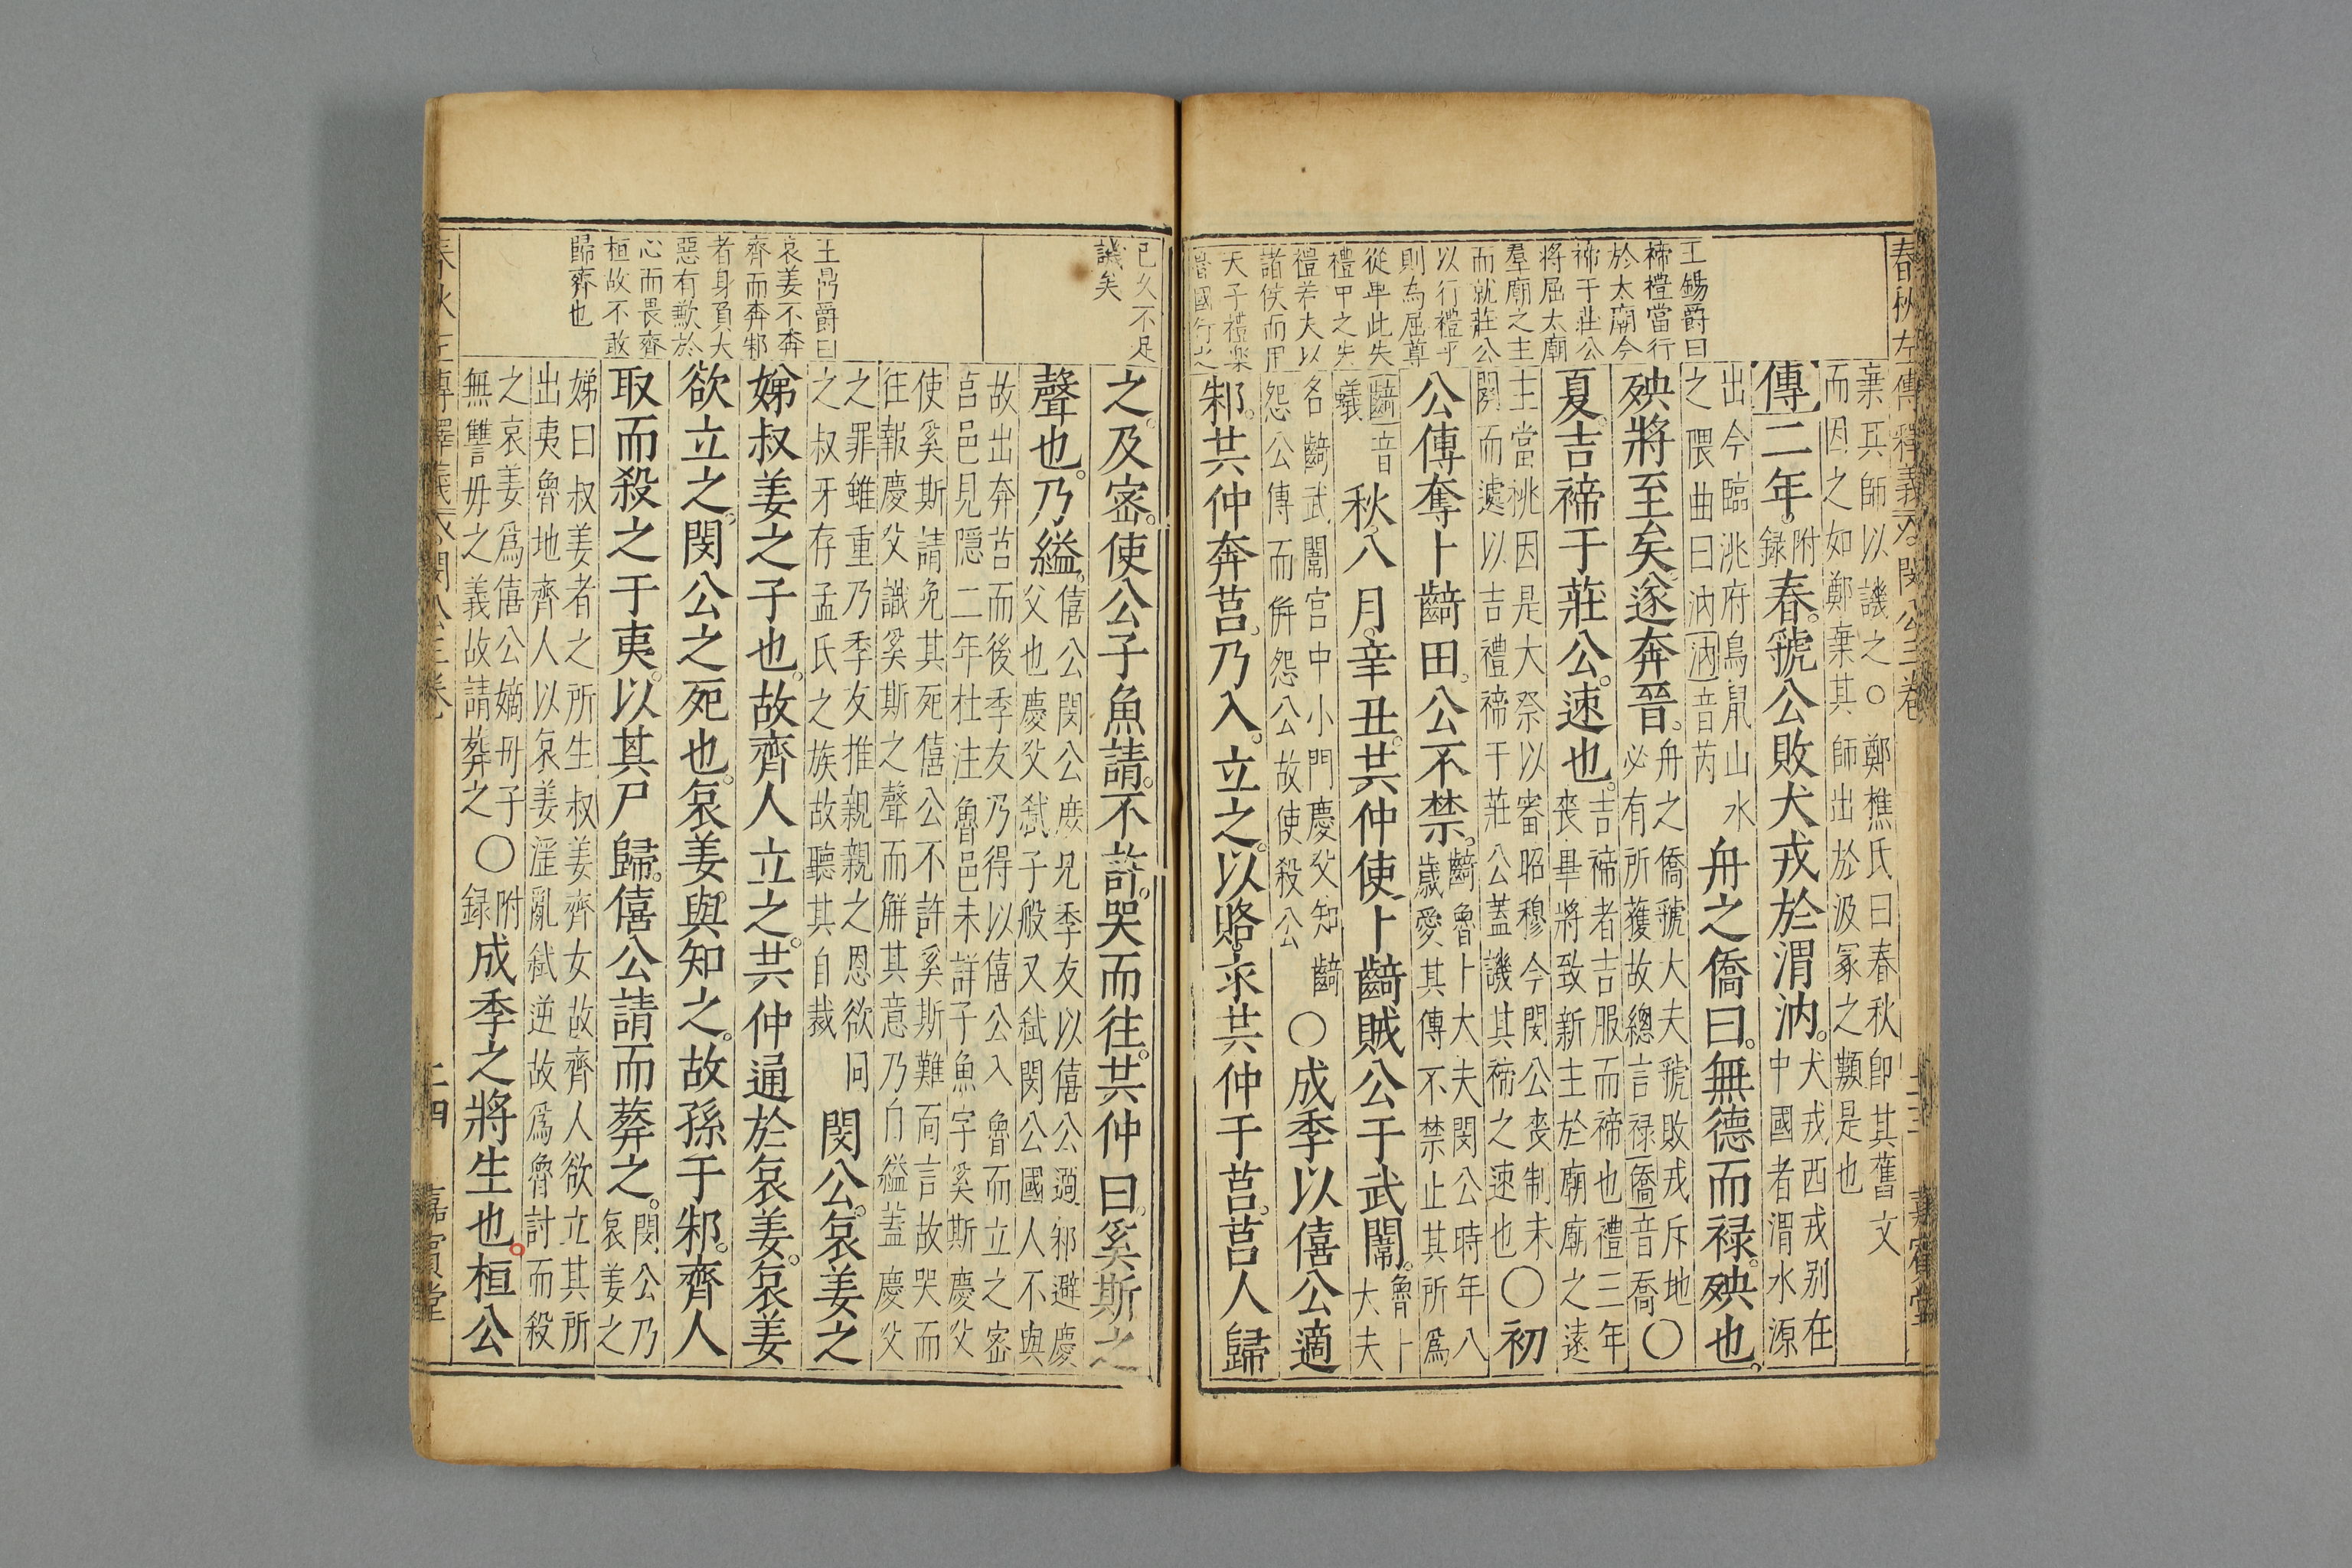 春秋左傳釋義 閔公三卷 二十三 嘉賓堂
王錫爵曰
禘禮當行
於太廟今
禘于莊公
將屈太廟
羣廟之主
而就莊公
以行禮乎
則為屈尊
從卑此失
禮中之失
禮若夫以
諸侯而用
天子禮樂
魯國行之
棄其師以譏之○鄭樵氏曰春秋卽其舊文
而因之如鄭棄其師出於汲冢之類是也
傳二年。附錄春。虢公敗犬戎於渭汭。犬戎西戎别在中國者渭水源
出今臨洮府鳥鼠山水之隈曲曰汭汭音芮舟之僑曰。無德而祿。殃也。
殃將至矣。遂奔晉。舟之僑虢大夫虢敗戎斥地必有所獲故總言祿僑音喬○
夏。吉禘于莊公。速也。吉禘者吉服而禘也禮三年喪畢將致新主於廟廟之遠
主當祧因是大祭以審昭穆今閔公喪制未閟而遽以吉禮禘于莊公蓋譏其禘之速也○初
公傅奪卜齮田。公不禁。齮魯卜大夫閔公時年八歲愛其傅不禁止其所爲
齮音蟻秋。八月。辛丑。共仲使卜齮賊公于武闈。魯卜大夫
名齮武闈宮中小門慶父知齮怨公傅而幷怨公故使殺公○成季以僖公適
邾。共仲奔莒。乃入。立之。以賂。求共仲于莒。莒人歸
已久不足
譏矣
王鼎爵曰
哀姜不奔
齊而奔邾
者身負大
惡有歉於
心而畏齊
桓故不敢
歸齊也
之。及密。使公子魚請。不許。哭而往。共仲曰。奚斯之
聲也。乃縊。僖公閔公庶兄季友以僖公適邾避慶父也慶父弑子般又弑閔公國人不與
故出奔莒而後季友乃得以僖公入魯而立之密莒邑見隱二年杜注魯邑未詳子魚字奚斯慶父
使奚斯請免其死僖公不許奚斯難面言故哭而往報慶父識奚斯之聲而解其意乃自縊蓋慶父
之罪雖重乃季友推親親之恩欲同之叔牙存孟氏之族故聽其自裁閔公。哀姜之
娣叔姜之子也。故齊人立之。共仲通於哀姜。哀姜
欲立之。閔公之死也。哀姜與知之。故孫于邾。齊人
取而殺之于夷。以其尸歸。僖公請而葬之。閔公乃哀姜之
娣曰叔姜者之所生叔姜齊女故齊人欲立其所出夷魯地齊人以哀姜淫亂弑逆故爲魯討而殺
之哀姜爲僖公嫡母子無讐母之義故請葬之○附錄成季之將生也。桓公
春秋左傳釋義 閔公三卷 二十四 嘉賓堂